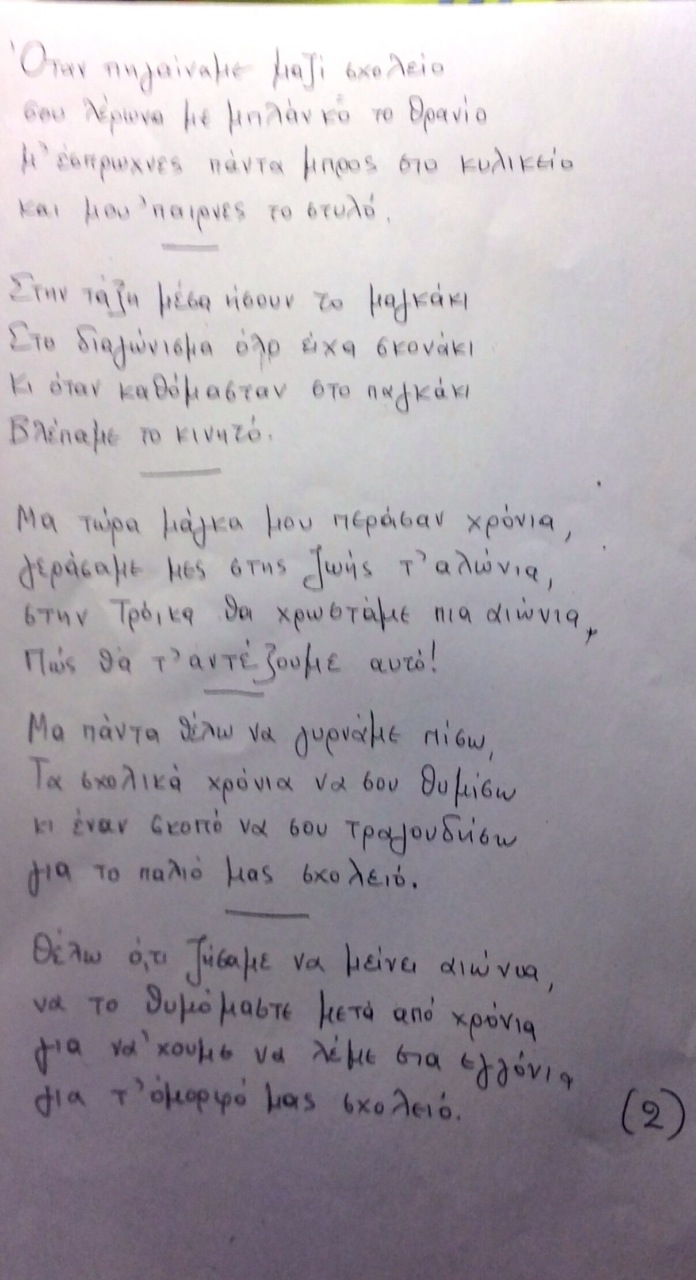 Όταν πηγαίναμε μαζί σχολείο
σου λέρωνα με μπλάνκο το θρανίο
μ' έσπρωχνες πάντα μπρος στο κυλικείο
και μου 'παιρνες το στυλό.
Στην τάξη μέσα ήσουν το μαγκάκι
Στο διαγώνισμα όλο είχα σκονάκι
Κι όταν καθόμασταν στο παγκάκι
Βλέπαμε το κινητό.
Μα τώρα μάγκα μου περάσαν χρόνια,
γεράσαμε μες στης ζωής τ' αλώνια,
στην Τρόικα θα χρωστάμε πια αιώνια,
Πώς θα τ' αντέξουμε αυτό!
Μα πάντα θέλω να γυρνάμε πίσω,
Τα σχολικά χρόνια να σου θυμίσω
κι έναν σκοπό να σου τραγουδήσω
για το παλιό μας σχολειό.
Θέλω ό,τι ζήσαμε να μείνει αιώνια,
να το θυμόμαστε μετά από χρόνια
για να 'χουμε να λέμε στα εγγόνια
για τ' όμορφό μας σχολειό. (2)